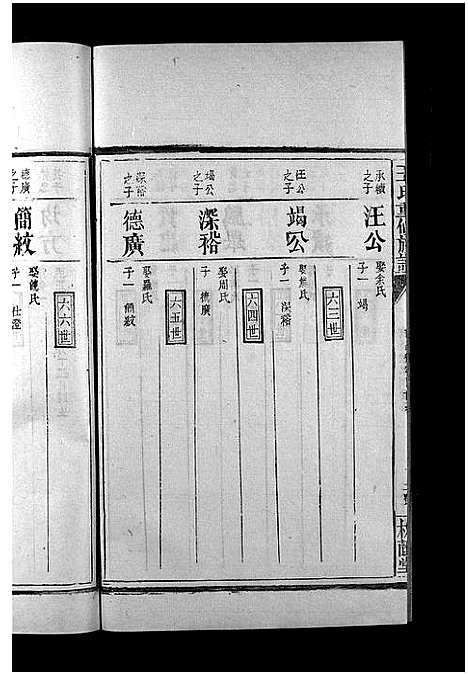 王氏重修族譜
永續之子
汪公
娶余氏
子一 竭
六三世
汪公之子
竭公
娶熊氏
子一 深裕
六四世
竭公之子
深裕
娶周氏
子 德廣
六五世
深裕之子
德廣
娶羅氏
子一 簡紋
六六世
德廣之子
簡紋
娶饒氏
子一 仕澄